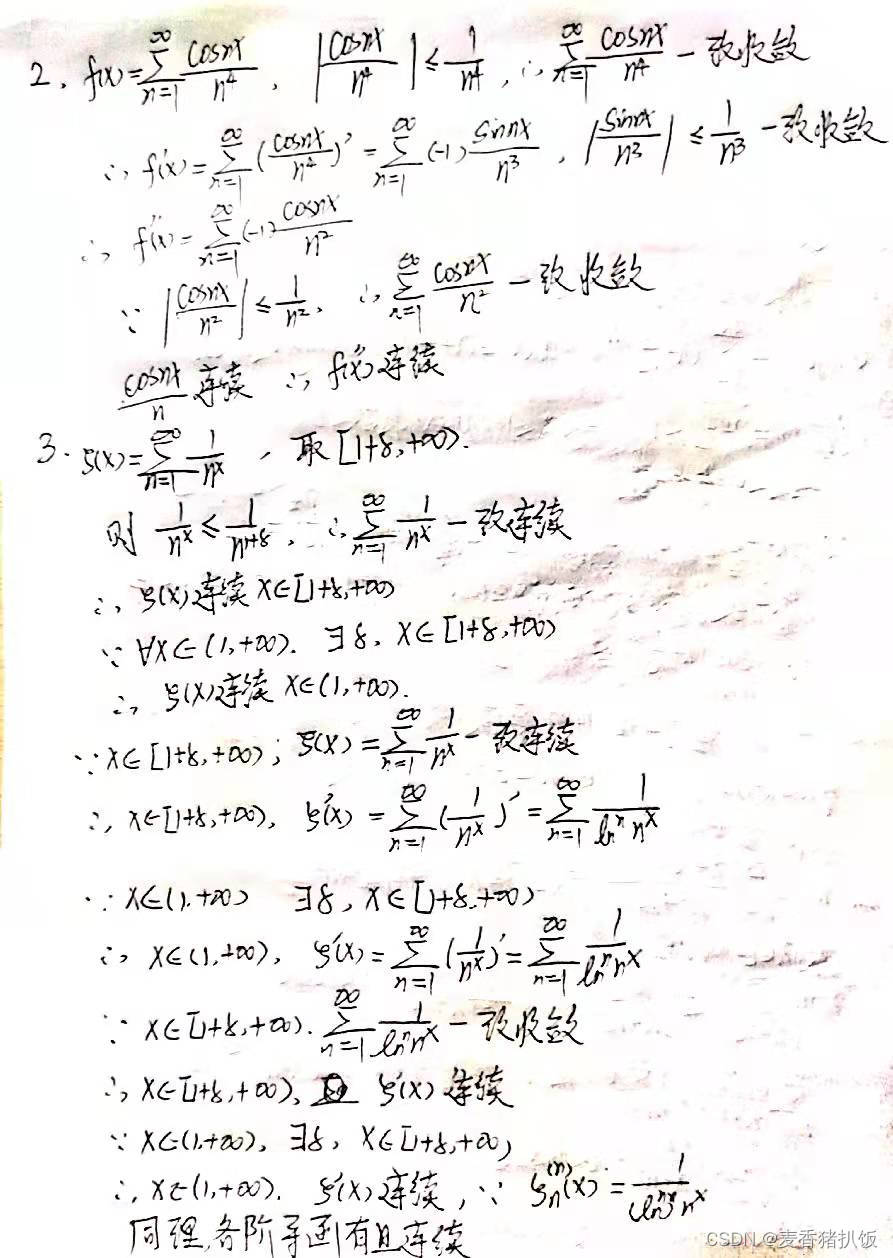 2. f(x)=∑_{n=1}^{∞} cosnx/n⁴, |cosnx/n⁴| ≤ 1/n⁴, ∴ ∑_{n=1}^{∞} cosnx/n⁴ 一致收敛
∴ f'(x)=∑_{n=1}^{∞} (cosnx/n⁴)' = ∑_{n=1}^{∞} (-1) sinnx/n³, |sinnx/n³| ≤ 1/n³ 一致收敛
∴ f''(x)=∑_{n=1}^{∞} (-1) cosnx/n²
∵ |cosnx/n²| ≤ 1/n², ∴ ∑_{n=1}^{∞} cosnx/n² 一致收敛
cosnx/n 连续 ∴ f''(x) 连续
3. ξ(x)=∑_{n=1}^{∞} 1/n^x , 取[1+δ,+∞).
则 1/n^x ≤ 1/n^{1+δ}, ∴ ∑_{n=1}^{∞} 1/n^x 一致连续
∴ ξ(x)连续 x∈[1+δ,+∞)
∵ ∀x∈(1,+∞). ∃δ, x∈[1+δ,+∞)
∴ ξ(x)连续 x∈(1,+∞).
∵ x∈[1+δ,+∞); ξ(x)=∑_{n=1}^{∞} 1/n^x 一致连续
∴ x∈[1+δ,+∞), ξ'(x)=∑_{n=1}^{∞} (1/n^x)' = ∑_{n=1}^{∞} 1/(lnⁿ n^x)
∵ x∈(1,+∞) ∃δ, x∈[1+δ,+∞)
∴ x∈(1,+∞), ξ'(x)=∑_{n=1}^{∞} (1/n^x)' = ∑_{n=1}^{∞} 1/(lnⁿ n^x)
∵ x∈[1+δ,+∞). ∑_{n=1}^{∞} 1/(lnⁿ n^x) 一致收敛
∴ x∈[1+δ,+∞), ξ'(x) 连续
∵ x∈(1,+∞), ∃δ, x∈[1+δ,+∞)
∴ x∈(1,+∞). ξ'(x) 连续, ∵ ξ_n^{(n)}(x) = 1/((ln)^n n^x)
同理,各阶导函有且连续
CSDN @麦香猪扒饭